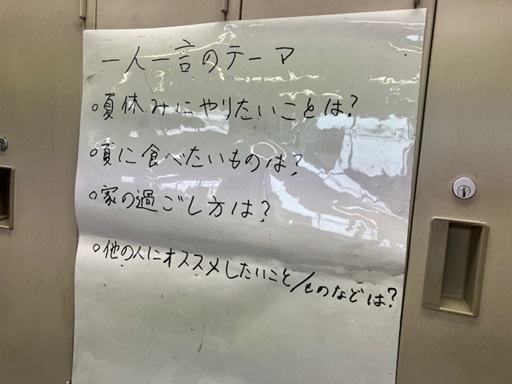 一人一言のテーマ
○夏休みにやりたいことは?
○夏に食べたいものは?
○家の過ごし方は?
○他の人にオススメしたいこと/ものなどは?